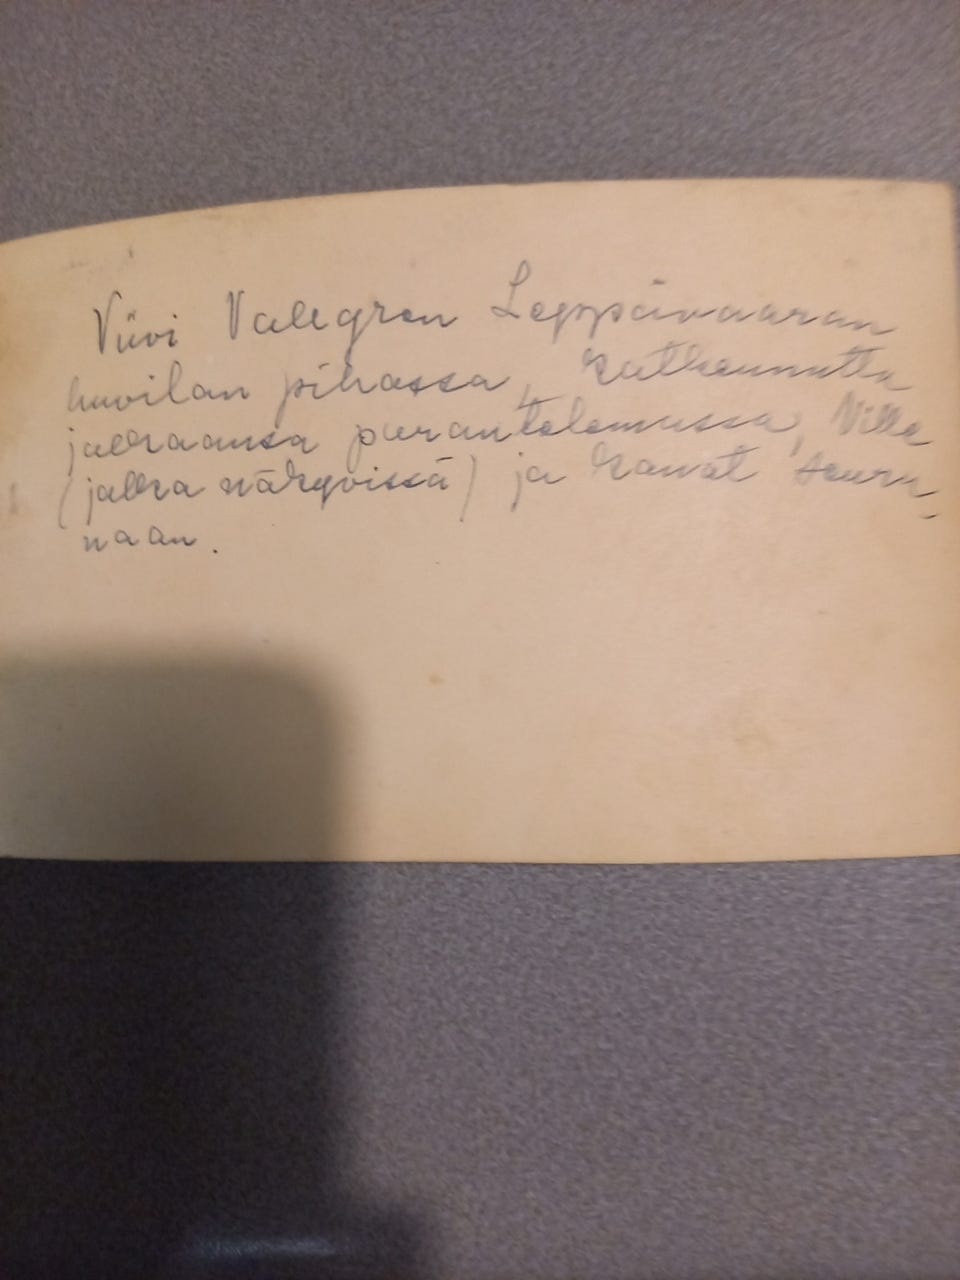 Viivi Vallgren Leppävaaran
huvilan pihassa, katkennutta
jalkaansa parantelemassa, Ville
(jalka näkyvissä) ja kanat seura-
naan.